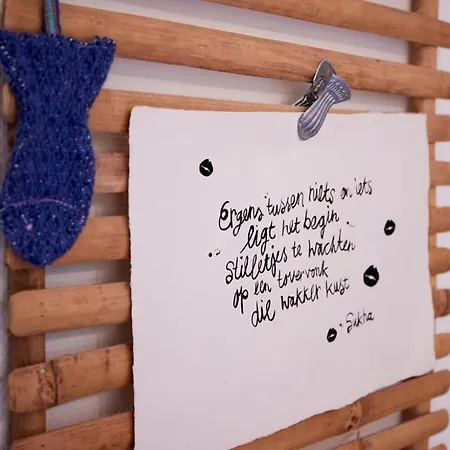 Ergens tussen niets en iets
ligt het begin
Stilletjes te wachten
op een tovervonk
die wakker kust
- Sukha